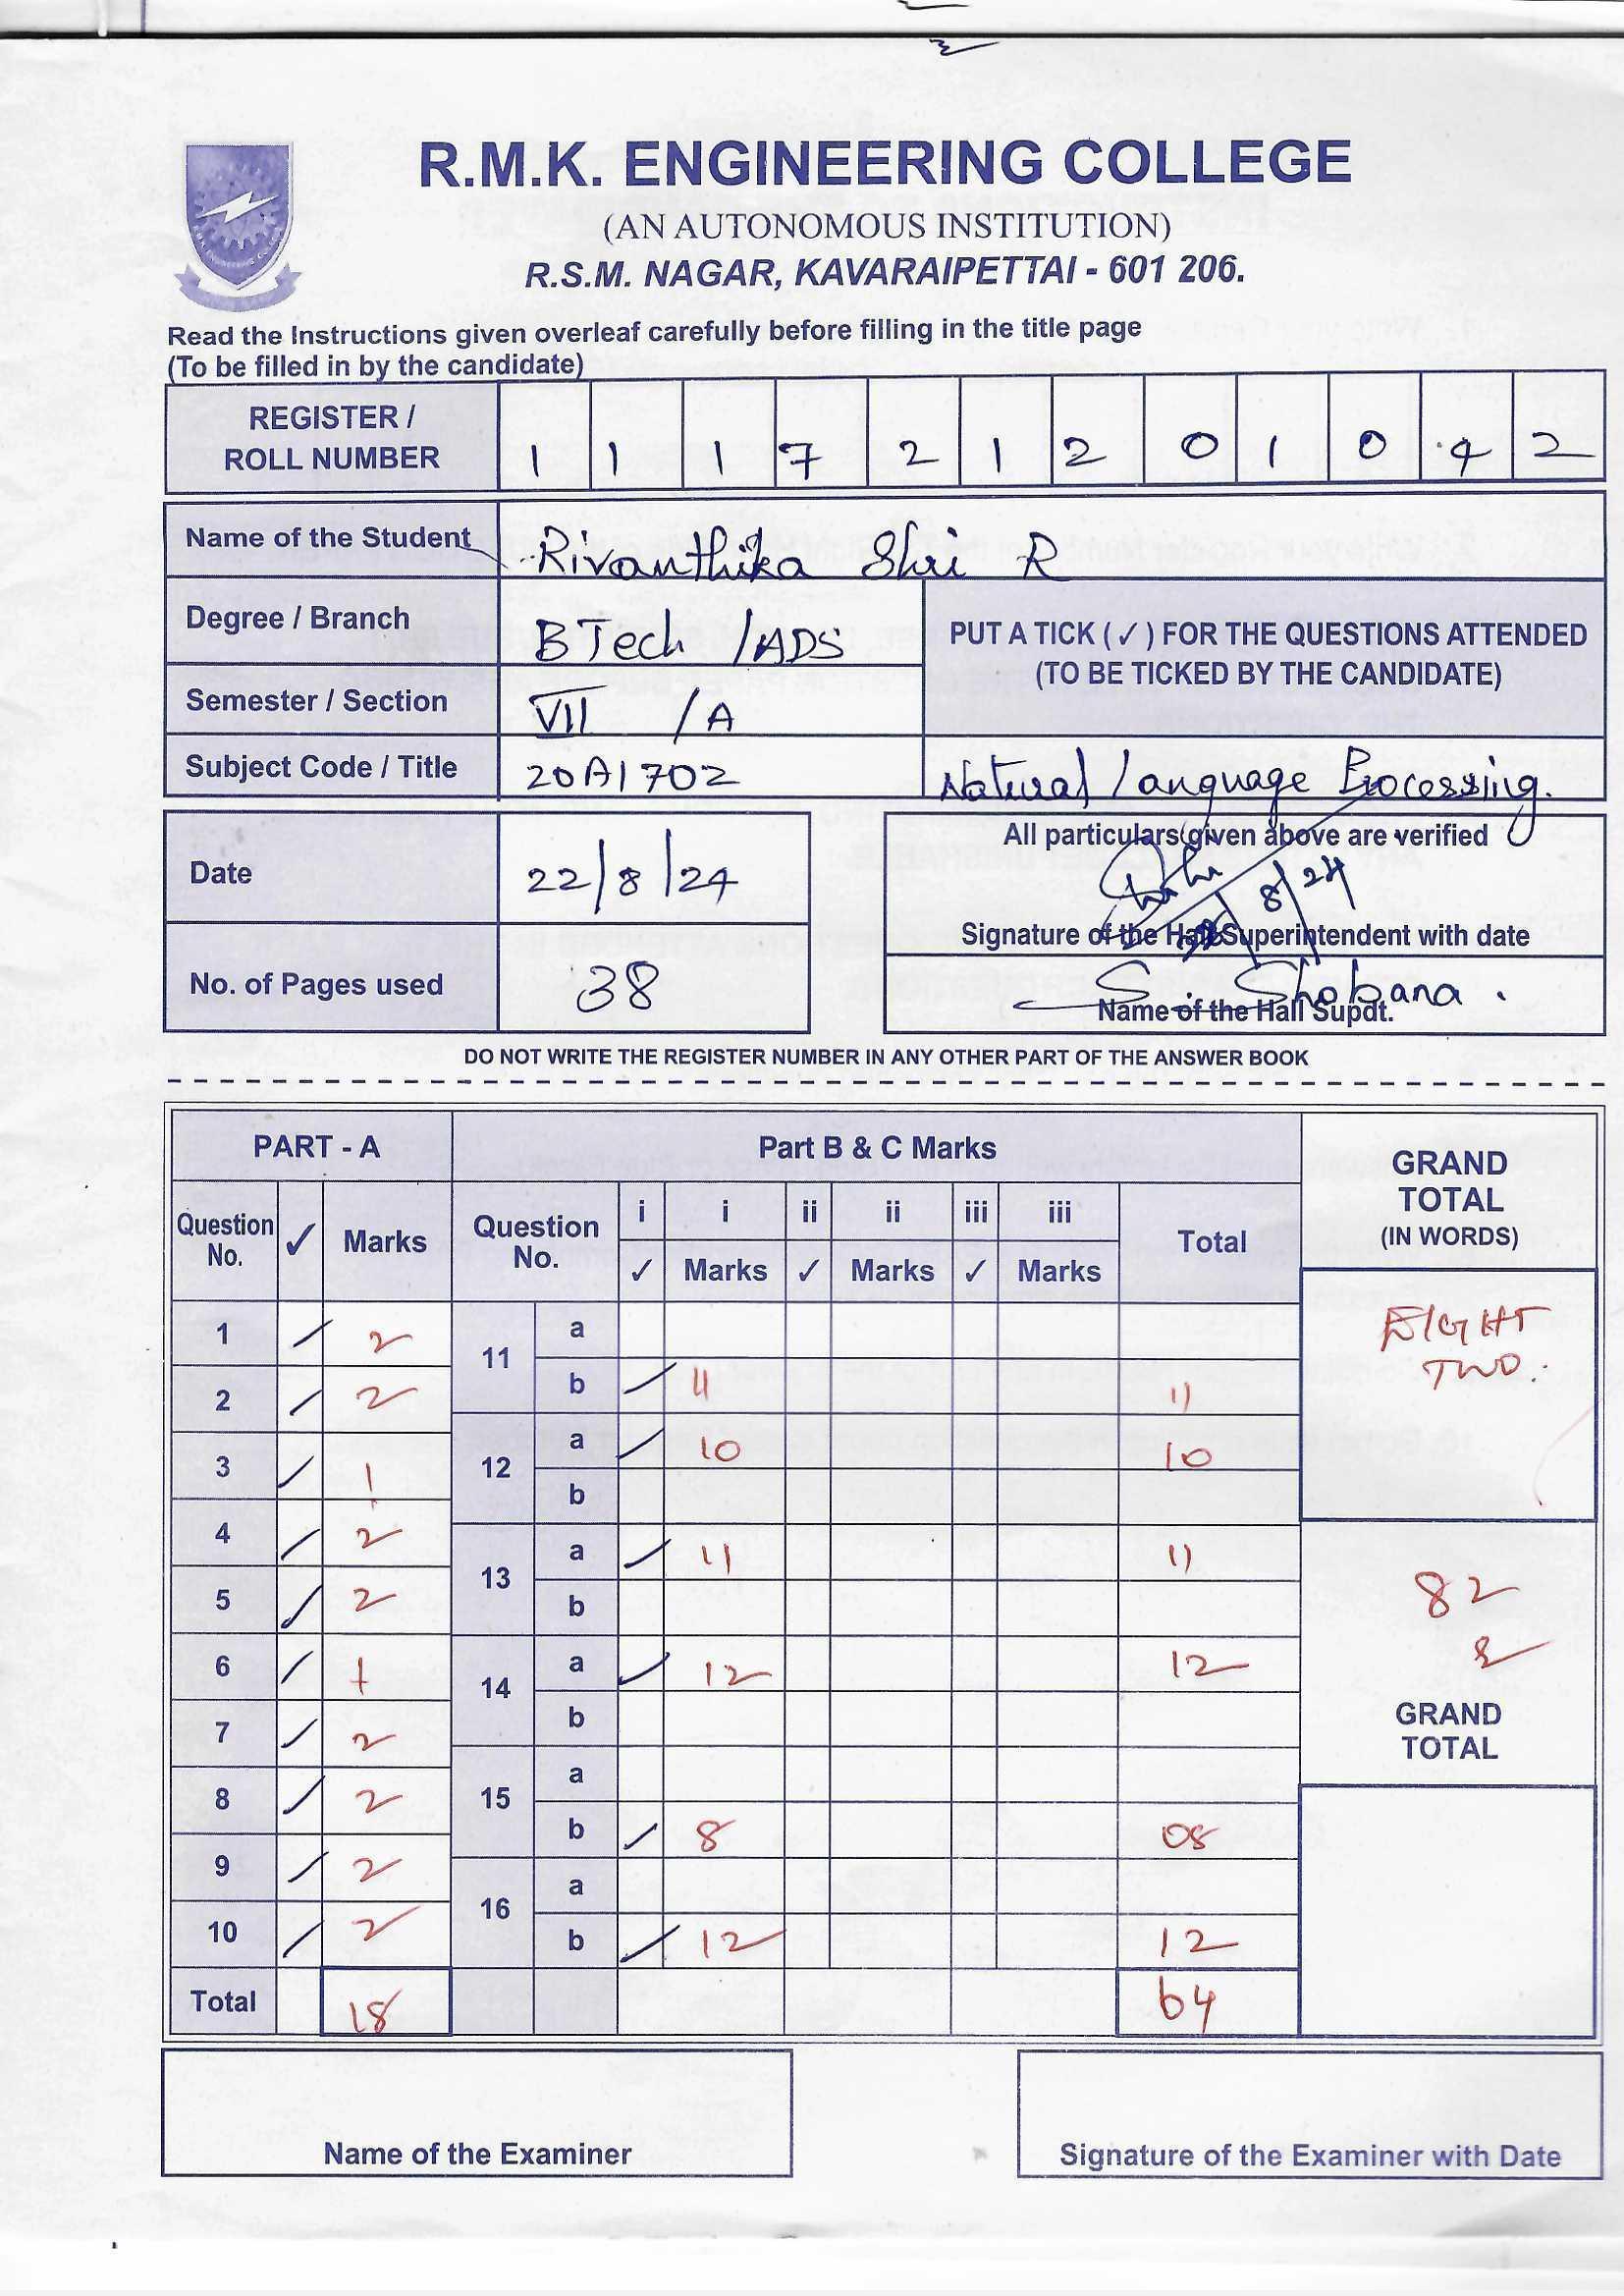 R.M.K. ENGINEERING COLLEGE
(AN AUTONOMOUS INSTITUTION)
R.S.M. NAGAR, KAVARAIPETTAI - 601 206.
Read the Instructions given overleaf carefully before filling in the title page
(To be filled in by the candidate)
REGISTER / ROLL NUMBER 1 1 1 7 2 1 2 0 1 0 4 2
Name of the Student Rivanthika Shri R
Degree / Branch B Tech /ADS
PUT A TICK (✓) FOR THE QUESTIONS ATTENDED
(TO BE TICKED BY THE CANDIDATE)
Semester / Section VII /A
Subject Code / Title 20AI702 Natural Language Processing.
All particulars given above are verified
Date 22/8/24
8/24
Signature of the Hall Superintendent with date
No. of Pages used 38
S. Shobana.
Name of the Hall Supdt.
DO NOT WRITE THE REGISTER NUMBER IN ANY OTHER PART OF THE ANSWER BOOK
PART - A Part B & C Marks GRAND TOTAL (IN WORDS)
Question No. ✓ Marks Question No. i i ii ii iii iii Total
✓ Marks ✓ Marks ✓ Marks
1 ✓ 2 11 a
EIGHT
TWO.
2 ✓ 2 b ✓ 11 11
3 ✓ 1 12 a ✓ 10 10
b
4 ✓ 2 13 a ✓ 11 11
5 ✓ 2 b
82
6 ✓ 1 14 a ✓ 12 12
7 ✓ 2 b
GRAND TOTAL
8 ✓ 2 15 a
b ✓ 8 08
9 ✓ 2 16 a
10 ✓ 2 b ✓ 12 12
Total 18 64
Name of the Examiner
Signature of the Examiner with Date